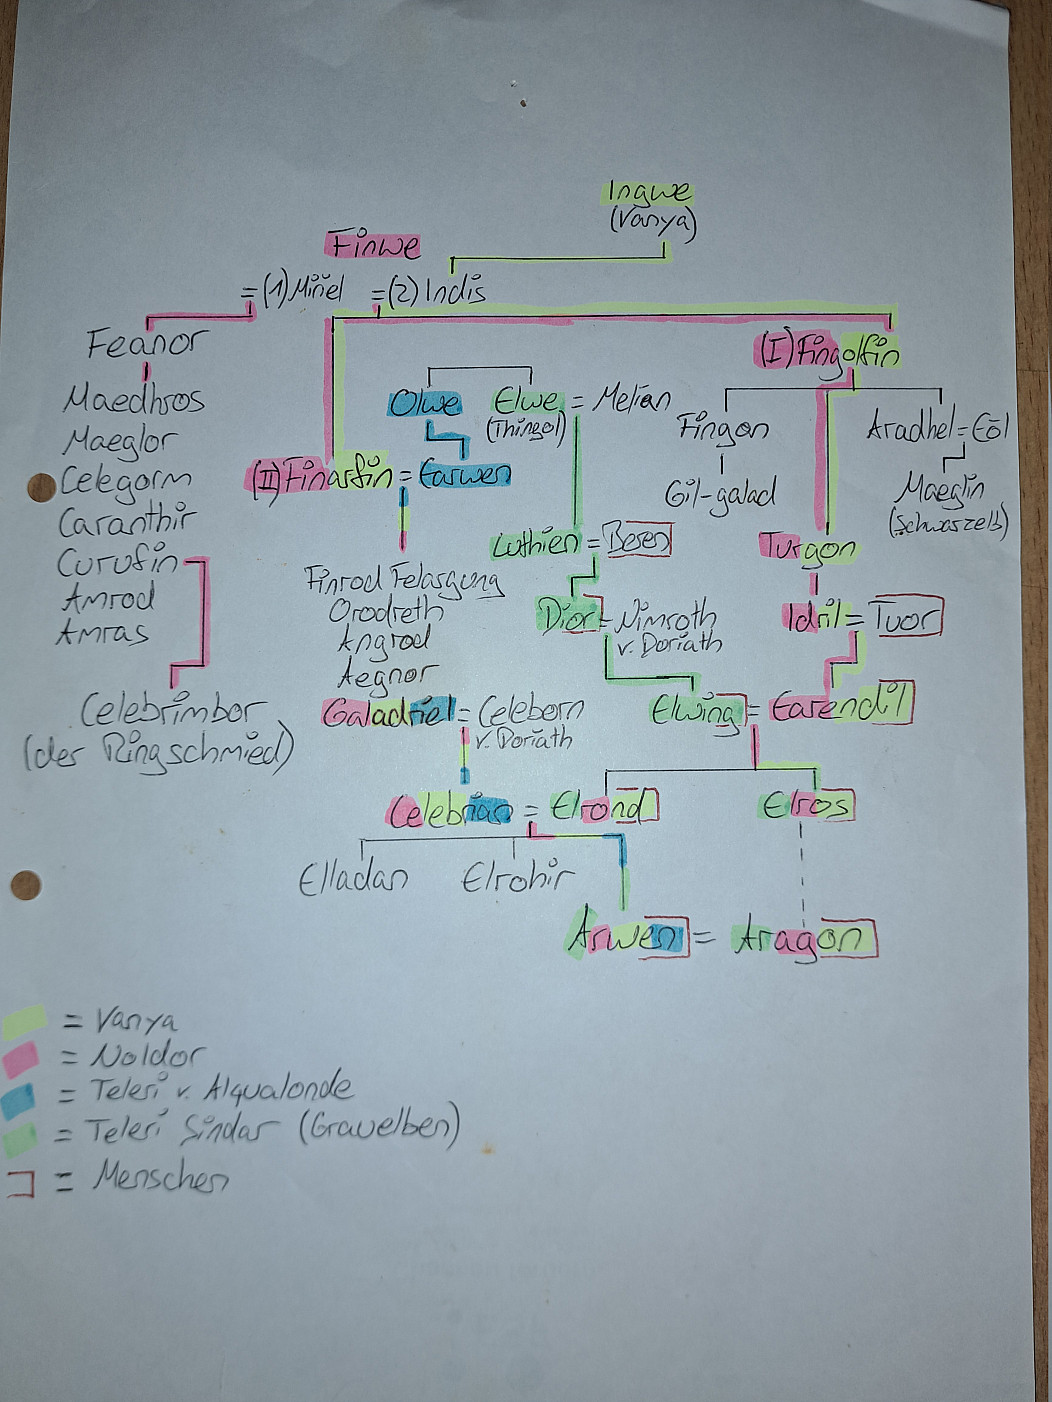 Ingwe
(Vanya)
Finwe
=(1) Miriel =(2) Indis
Feanor
(I) Fingolfin
Maedhros
Maeglor
Celegorm
Caranthir
Curufin
Amrod
Amras
Celebrimbor
(der Ringschmied)
Olwe Elwe = Melian
(Thingol)
Fingon
Aradhel = Eöl
Gil-galad
Maeglin
(Schwarzelb)
(II) Finarfin = Earwen
Luthien = Beren
Turgon
Finrod Felagung
Orodreth
Angrod
Aegnor
Galadriel = Celeborn
v. Doriath
Dior = Nimroth
v. Doriath
Idril = Tuor
Elwing = Earendil
Celebrian = Elrond
Elros
Elladan Elrohir
Arwen = Aragon
= Vanya
= Noldor
= Teleri v. Alqualonde
= Teleri Sindar (Grauelben)
= Menschen